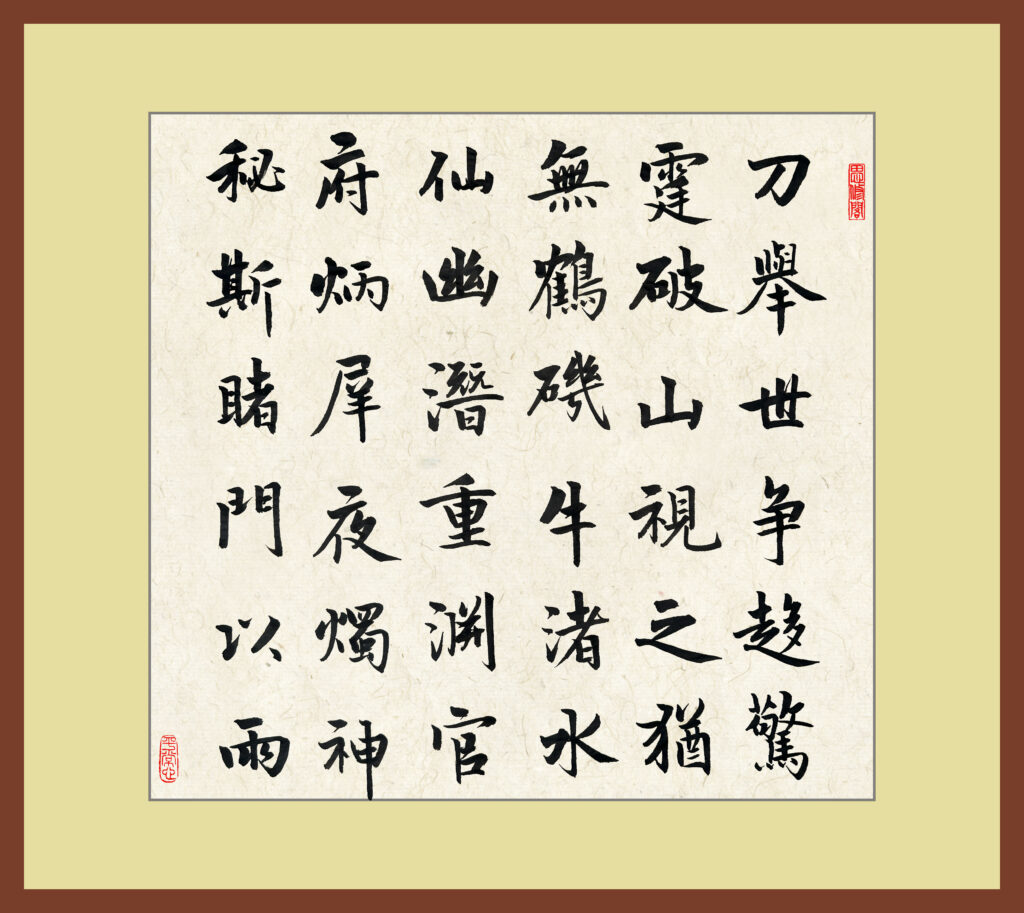 刀舉世争趍驚
霆破山視之猶
無鶴磯牛渚水
仙幽潛重淵官
府炳犀夜燭神
秘斯睹門以兩
思修閣